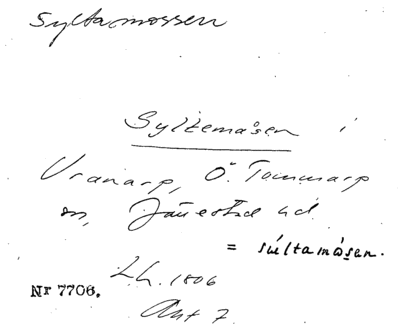 Syltamossen
Syltemåsen i
Vranarp, Ö. Tommarp
sn, Järrestad hd.
= súltamåsen.
L. h. 1806
Nr 7706.
Akt 7